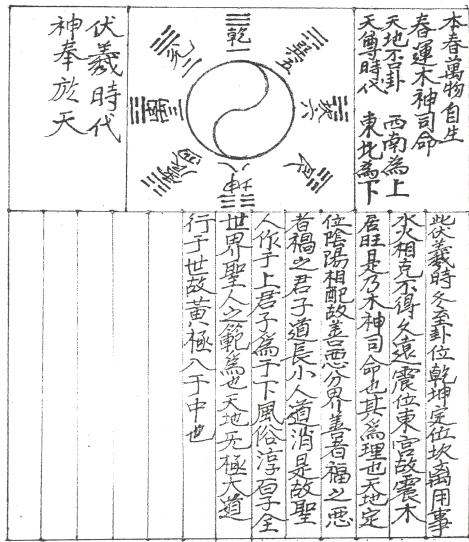 本春萬物自生
春運木神司命
天地否卦 西南為上
天尊時代 東北為下
乾一
巽五
坎六
艮七
坤八
震四
離三
兌二
伏羲時代
神奉於天
此伏羲時久至卦位乾坤定位坎离用事
水火相克不得久遠震位東宮故震木
居旺是乃木神司命也其為理也天地定
位陰陽相配故善惡分界善者福之惡
者禍之君子道長小人道消是故聖
人作于上君子為于下風俗淳百子全
世界聖人之範為也天地无極大道
行于世故黃極入于中也